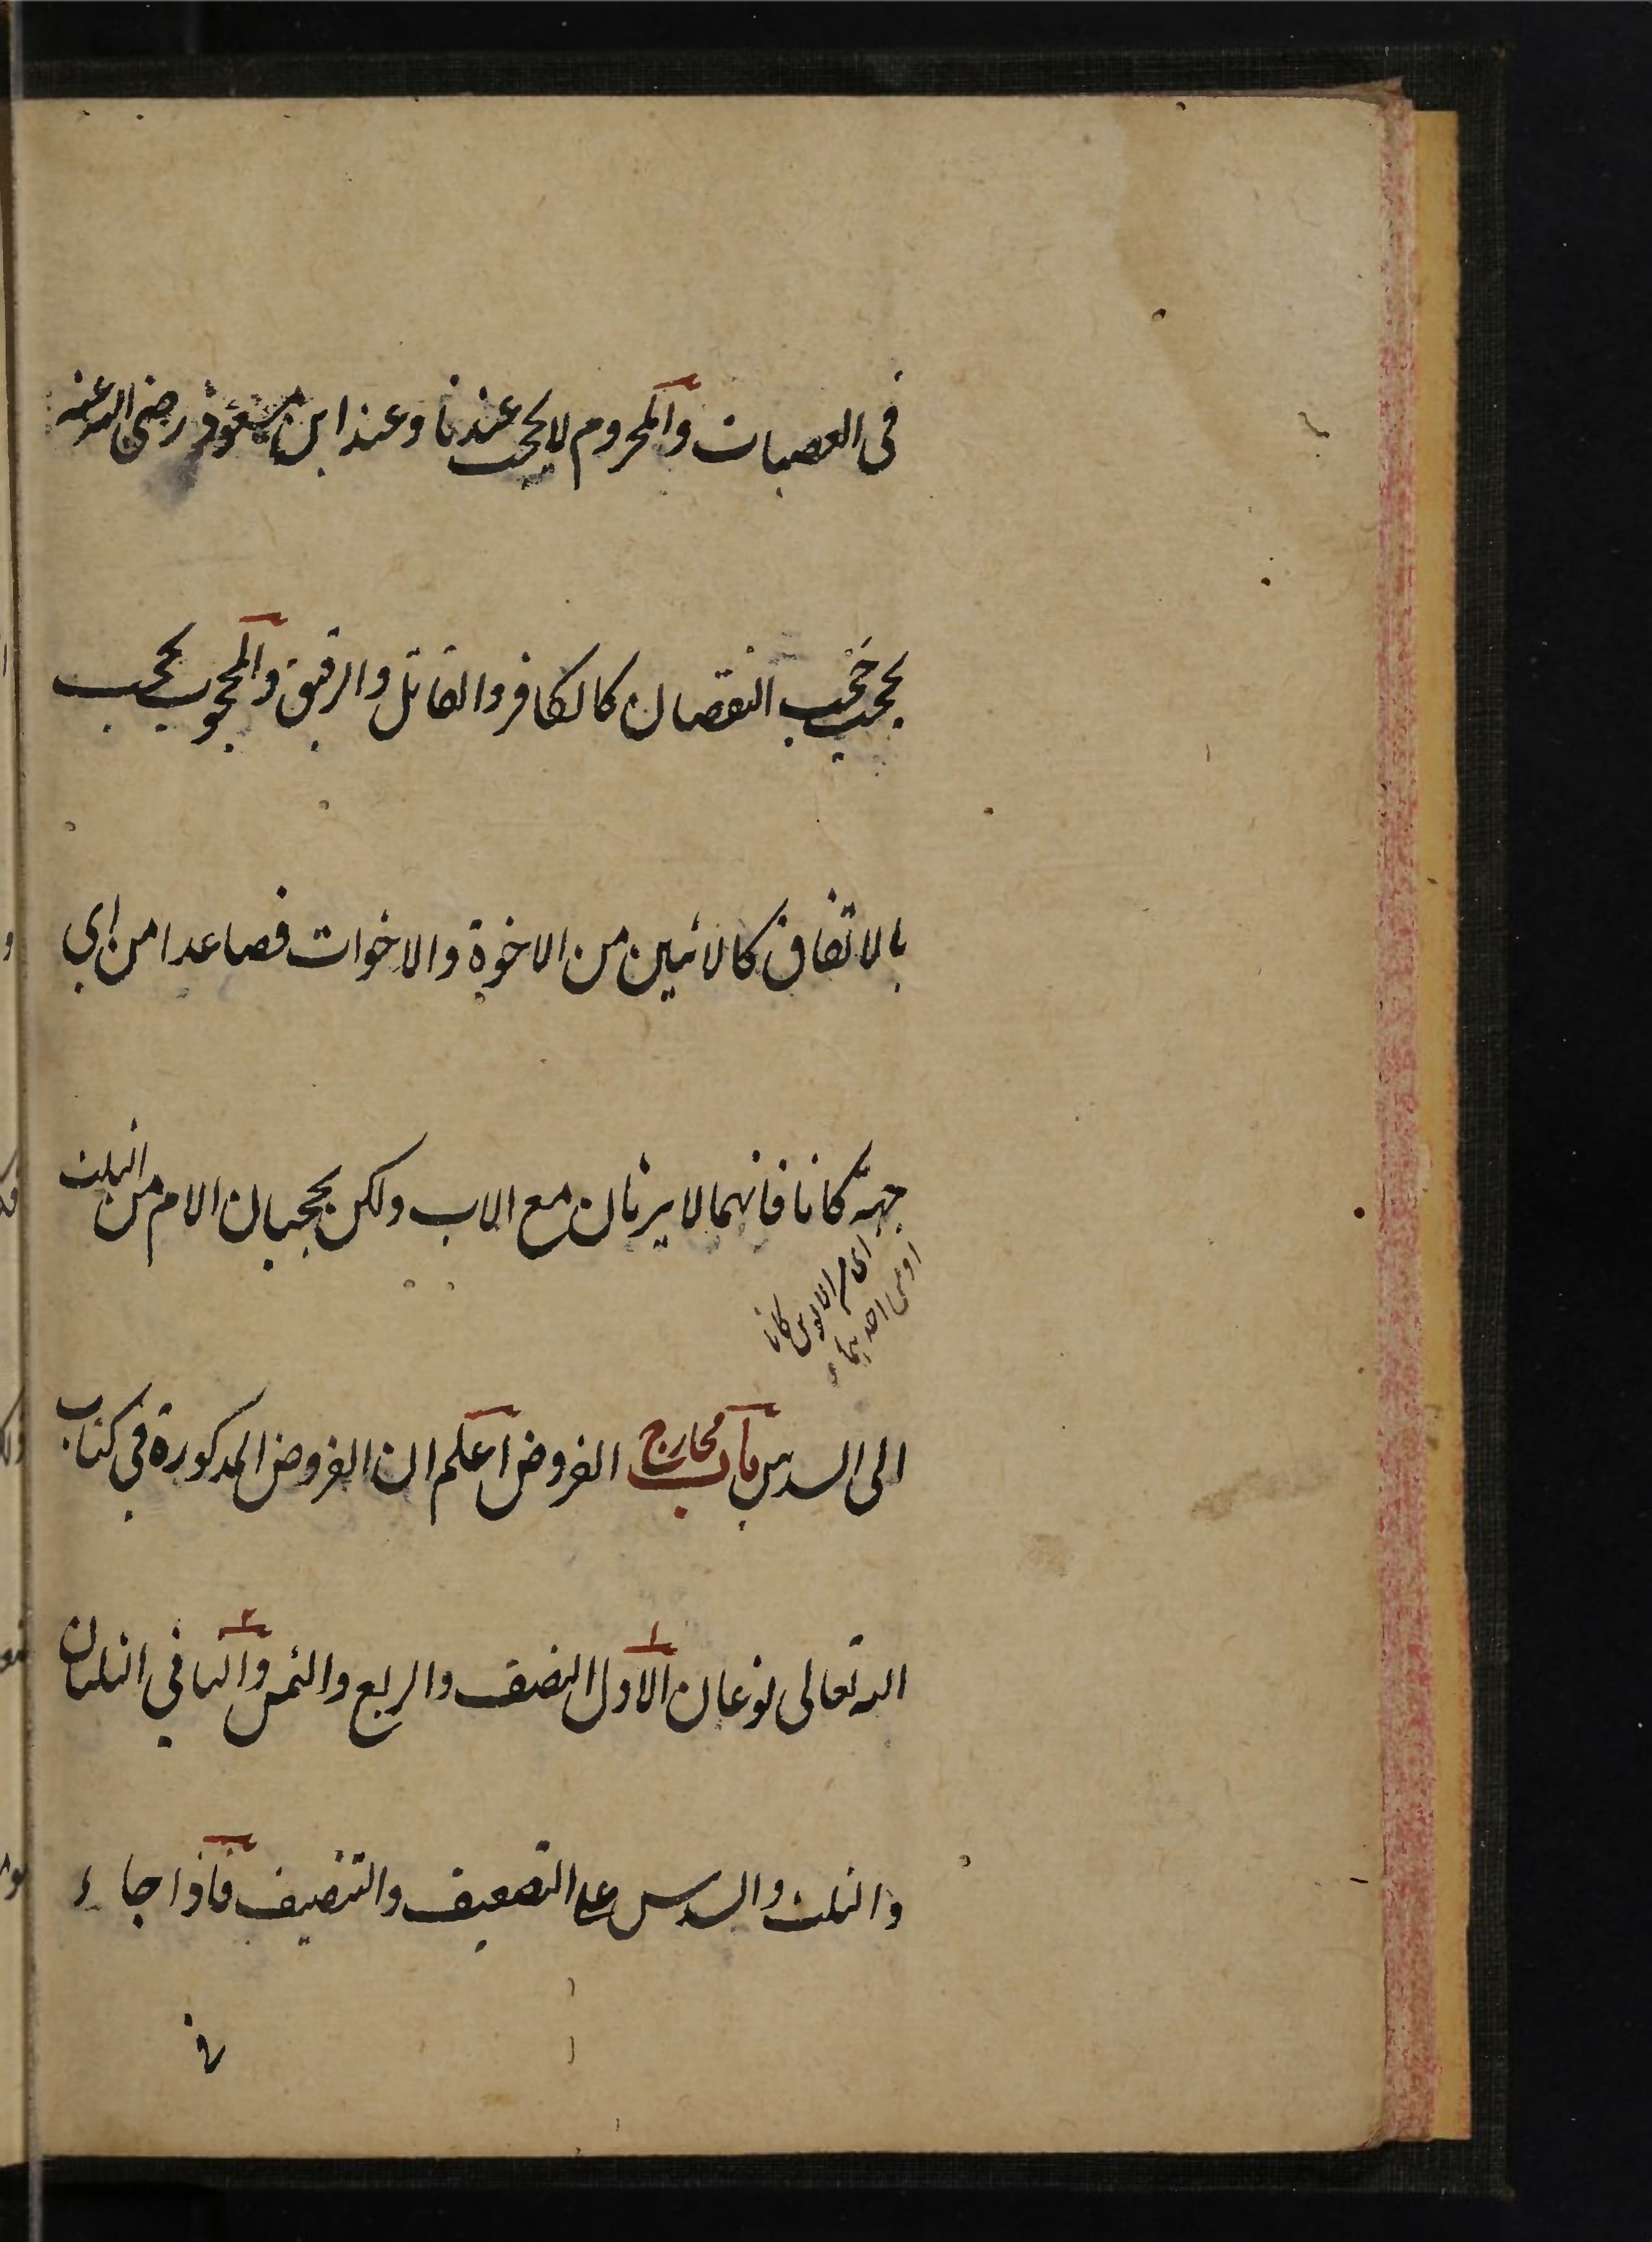 فى العصبات والمحروم لا يحجب عندنا وعند ابن مسعود رضى الله عنه
يحجب حجب النقصان كالكافر والقاتل والرقيق والمحجوب يحجب
بالاتفاق كالاثنين من الاخوة والاخوات فصاعدا من اى
جهة كانا فانهما لا يرثان مع الاب ولكن يحجبان الام من الثلث
اى من الابوين كانا
او من احديهما
الى السدس باب مخارج الفروض اعلم ان الفروض المذكورة فى كتاب
الله تعالى نوعان الاول النصف والربع والثمن والثانى الثلثان
١ ٢
والثلث والسدس على التضعيف والتنصيف فاذا جاء